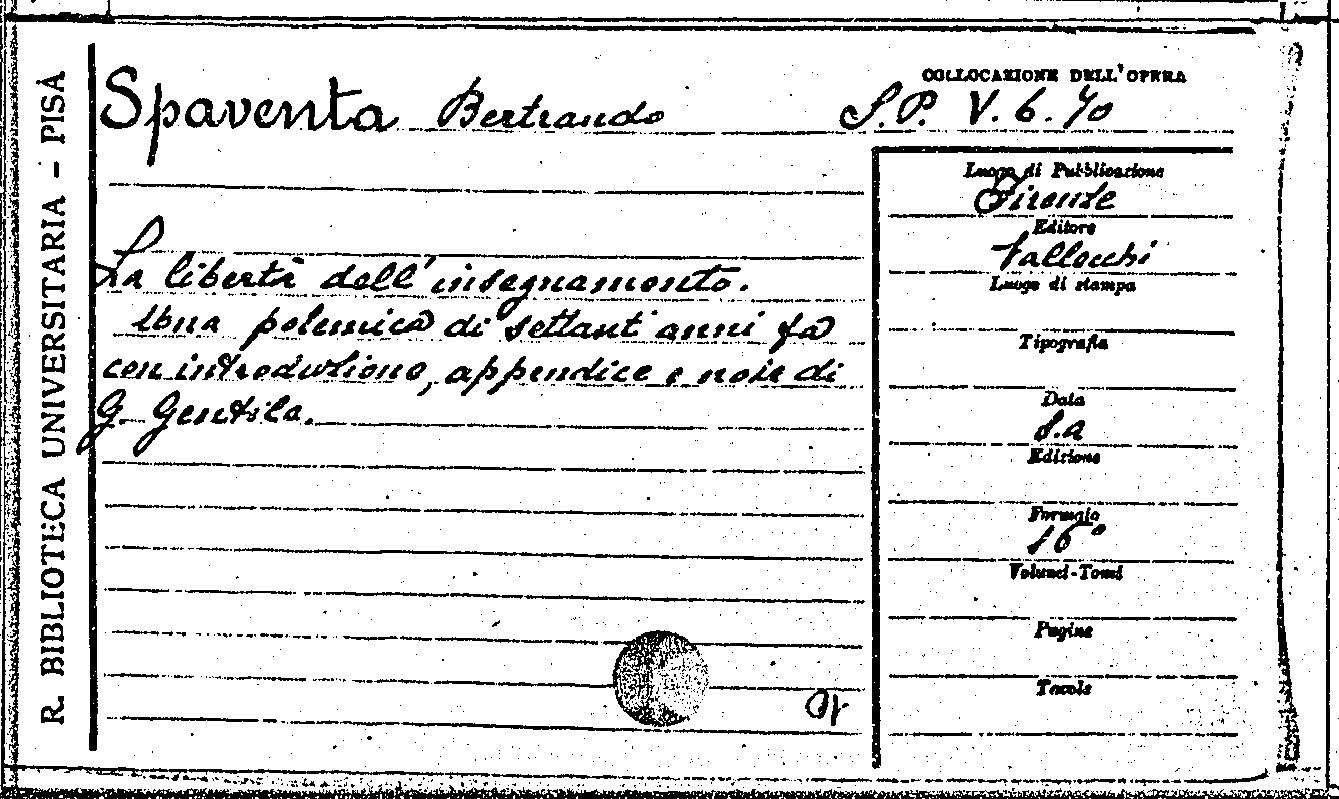 R. BIBLIOTECA UNIVERSITARIA - PISA
Spaventa Bertrando
COLLOCAZIONE DELL'OPERA
S.P. V.6.70
La libertà dell'insegnamento.
Una polemica di settant'anni fa
con introduzione, appendice e note di
G. Gentile.
Luogo di Pubblicazione
Firenze
Editore
Vallecchi
Luogo di stampa
Tipografia
Data
S.a
Edizione
Formato
16°
Volumi-Tomi
Pagine
Tavole